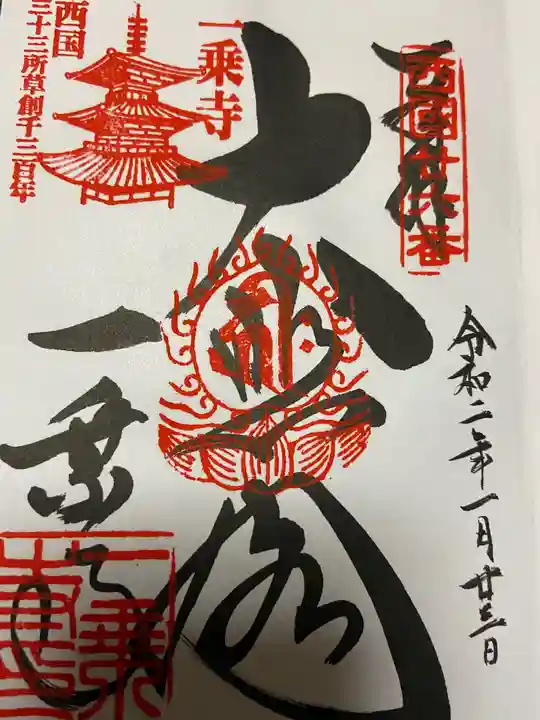 西國廿六番
奉拝
令和二年一月廿三日
大悲閣
一乗寺
一乗寺
西国
三十三所草創千三百年